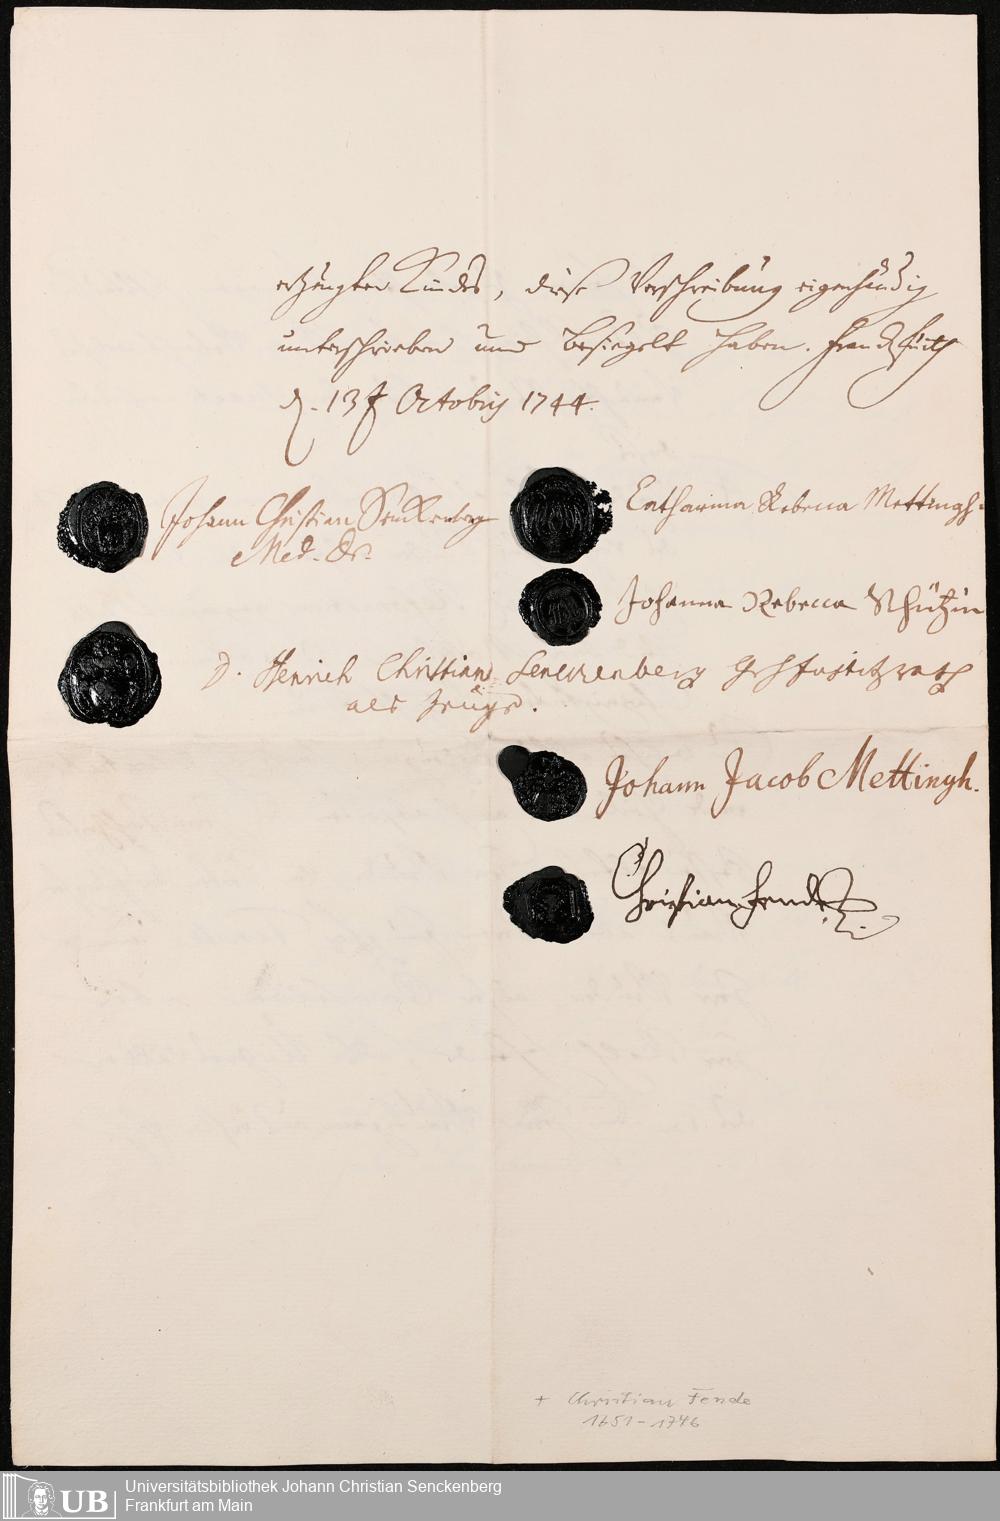 erzeugten Kindes, diese Verschreibung eigenhändig
unterschrieben und besiegelt haben. Franckfurth
d. 13. Octobris 1744.
Johann Christian Senckenberg
Med. Dr.
Catharina Rebecca Mettingh.
Johanna Rebecca Schützin
D. Henrich Christian Senckenberg
als Zeuge.
Johann Jacob Mettingh.
Christian Fende
+ Christian Fende
1651-1746
UB
Universitätsbibliothek Johann Christian Senckenberg
Frankfurt am Main